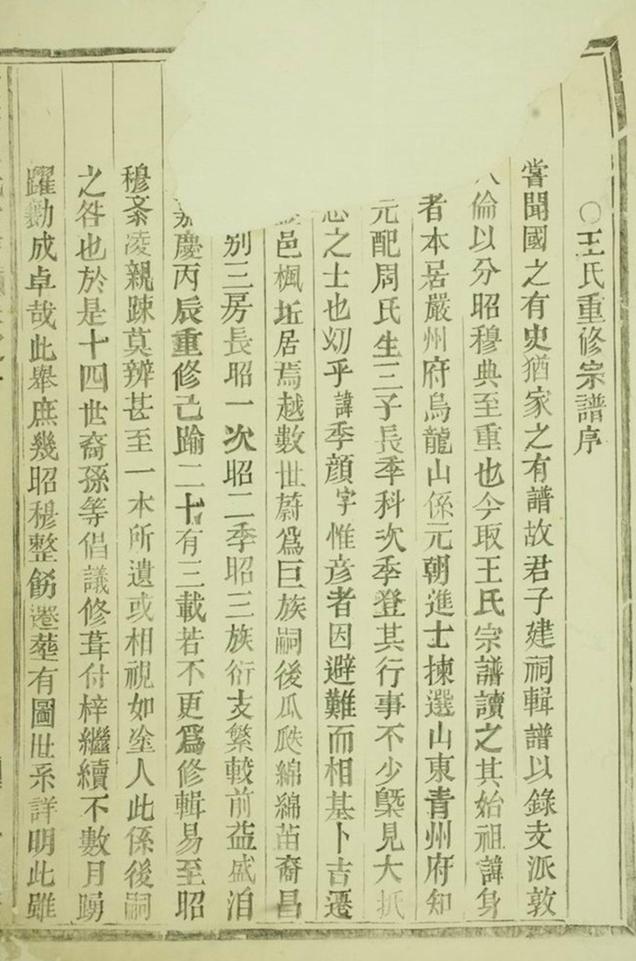 ○王氏重修宗譜序
嘗聞國之有史猶家之有譜故君子建祠輯譜以錄支派敦
倫以分昭穆典至重也今取王氏宗譜讀之其始祖諱身
者本居嚴州府烏龍山係元朝進士揀選山東青州府知
元配周氏生三子長季科次季登其行事不少槩見大抵
之士也刱乎諱季顔字惟彦者因避難而相基卜吉遷
邑楓坵居焉越數世蔚爲巨族嗣後瓜瓞綿綿苗裔昌
别三房長昭一次昭二季昭三族衍支繁較前益盛洎
慶丙辰重修已踰二十有三載若不更爲修輯易至昭
穆紊凌親踈莫辨甚至一本所遺或相視如塗人此係後嗣
之咎也於是十四世裔孫等倡議修葺付梓繼續不數月踴
躍勷成卓哉此舉庶幾昭穆整飭遷塟有圖世系詳明此雖